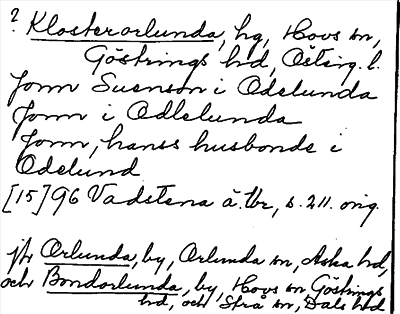 ? Klosterorlunda, hg, Hovs sn,
Göstrings hd, Östergl. l.
Jonn Suenson i Odelunda
Jonn i Odlelunda
Jonn, hanss husbonde i
Odelund
[15]96 Vadstena ä. tbr, s. 211. orig.
jfr Orlunda, by, Orlunda sn, Aska hd,
och Bondorlunda, by, Hovs sn Göstrings
hd, och Strå sn, Dals hd